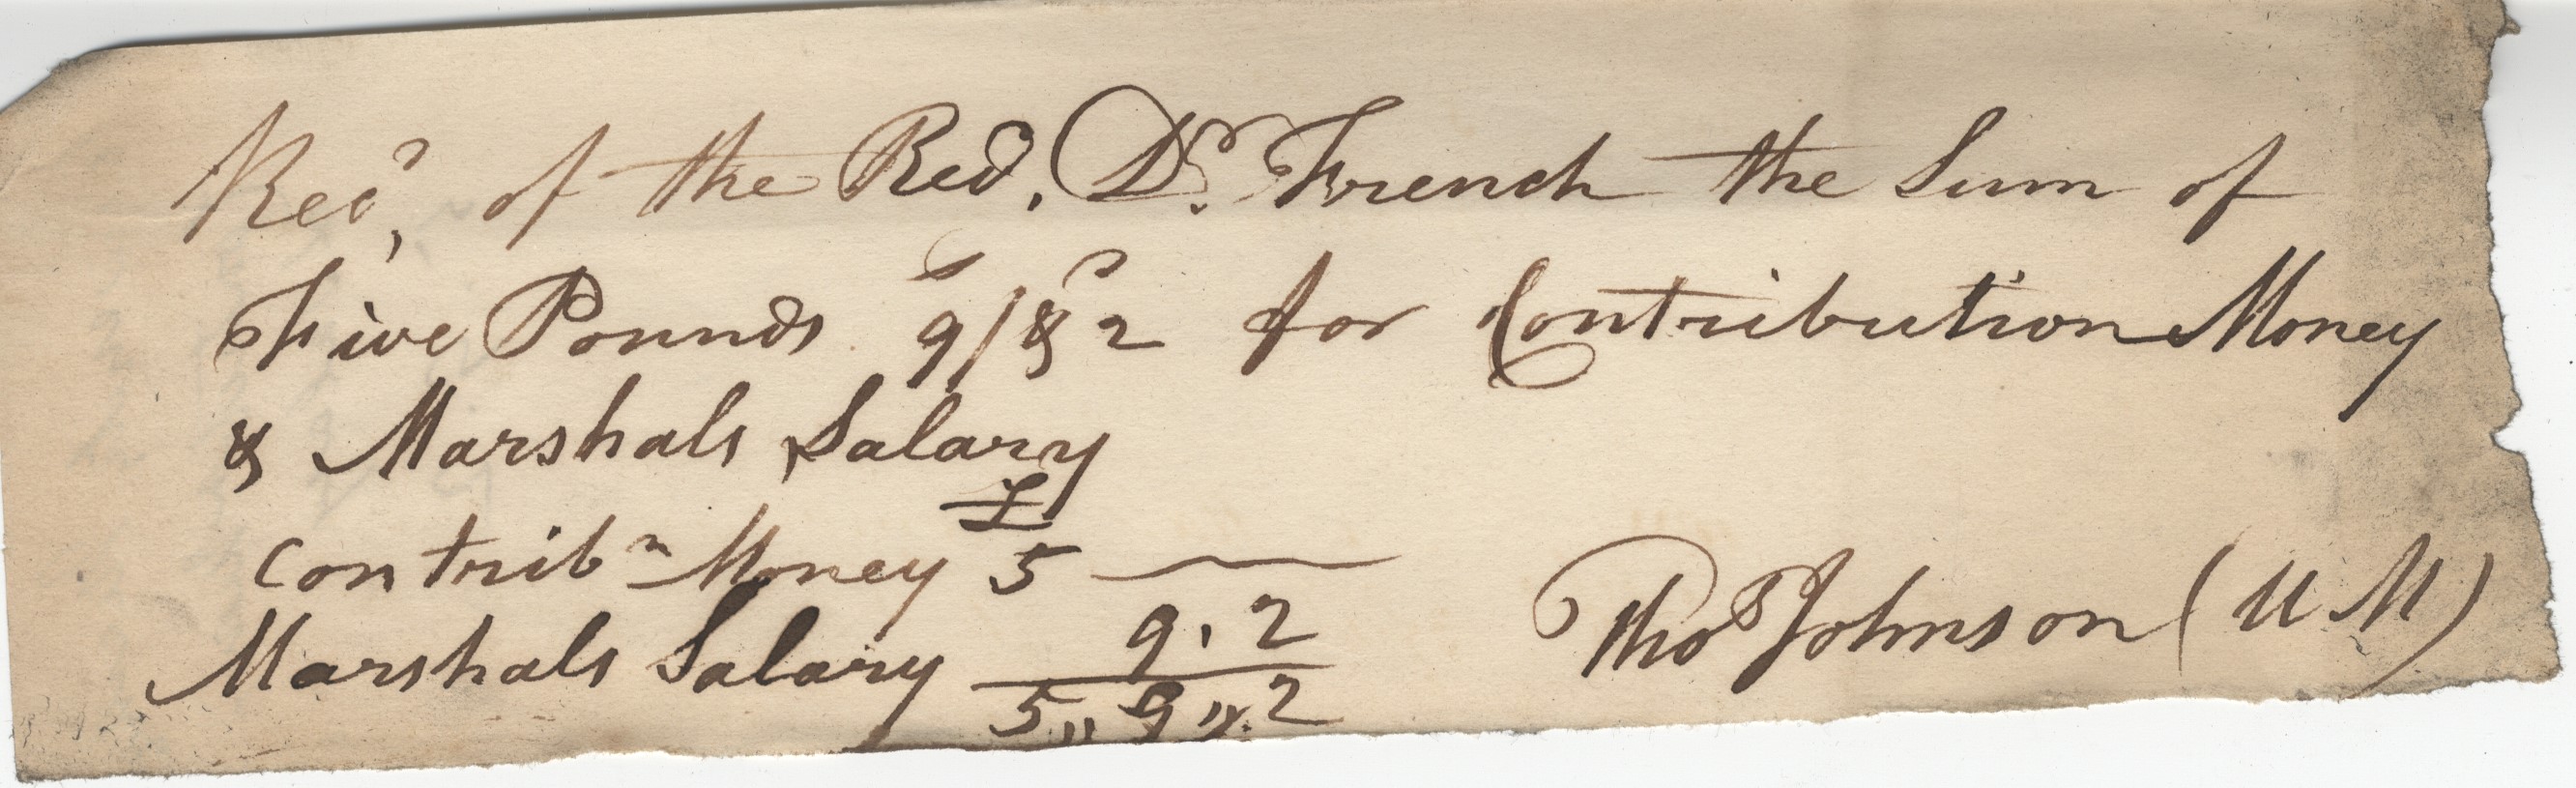 Recd, of the Revd. Dr. French the Sum of
Five Pounds 9s/ & 2d for Contribution Money
& Marshals Salary
£
Contribn Money 5 —
Marshals Salary 9. 2
5 " 9 " 2
Thos Johnson (U M)